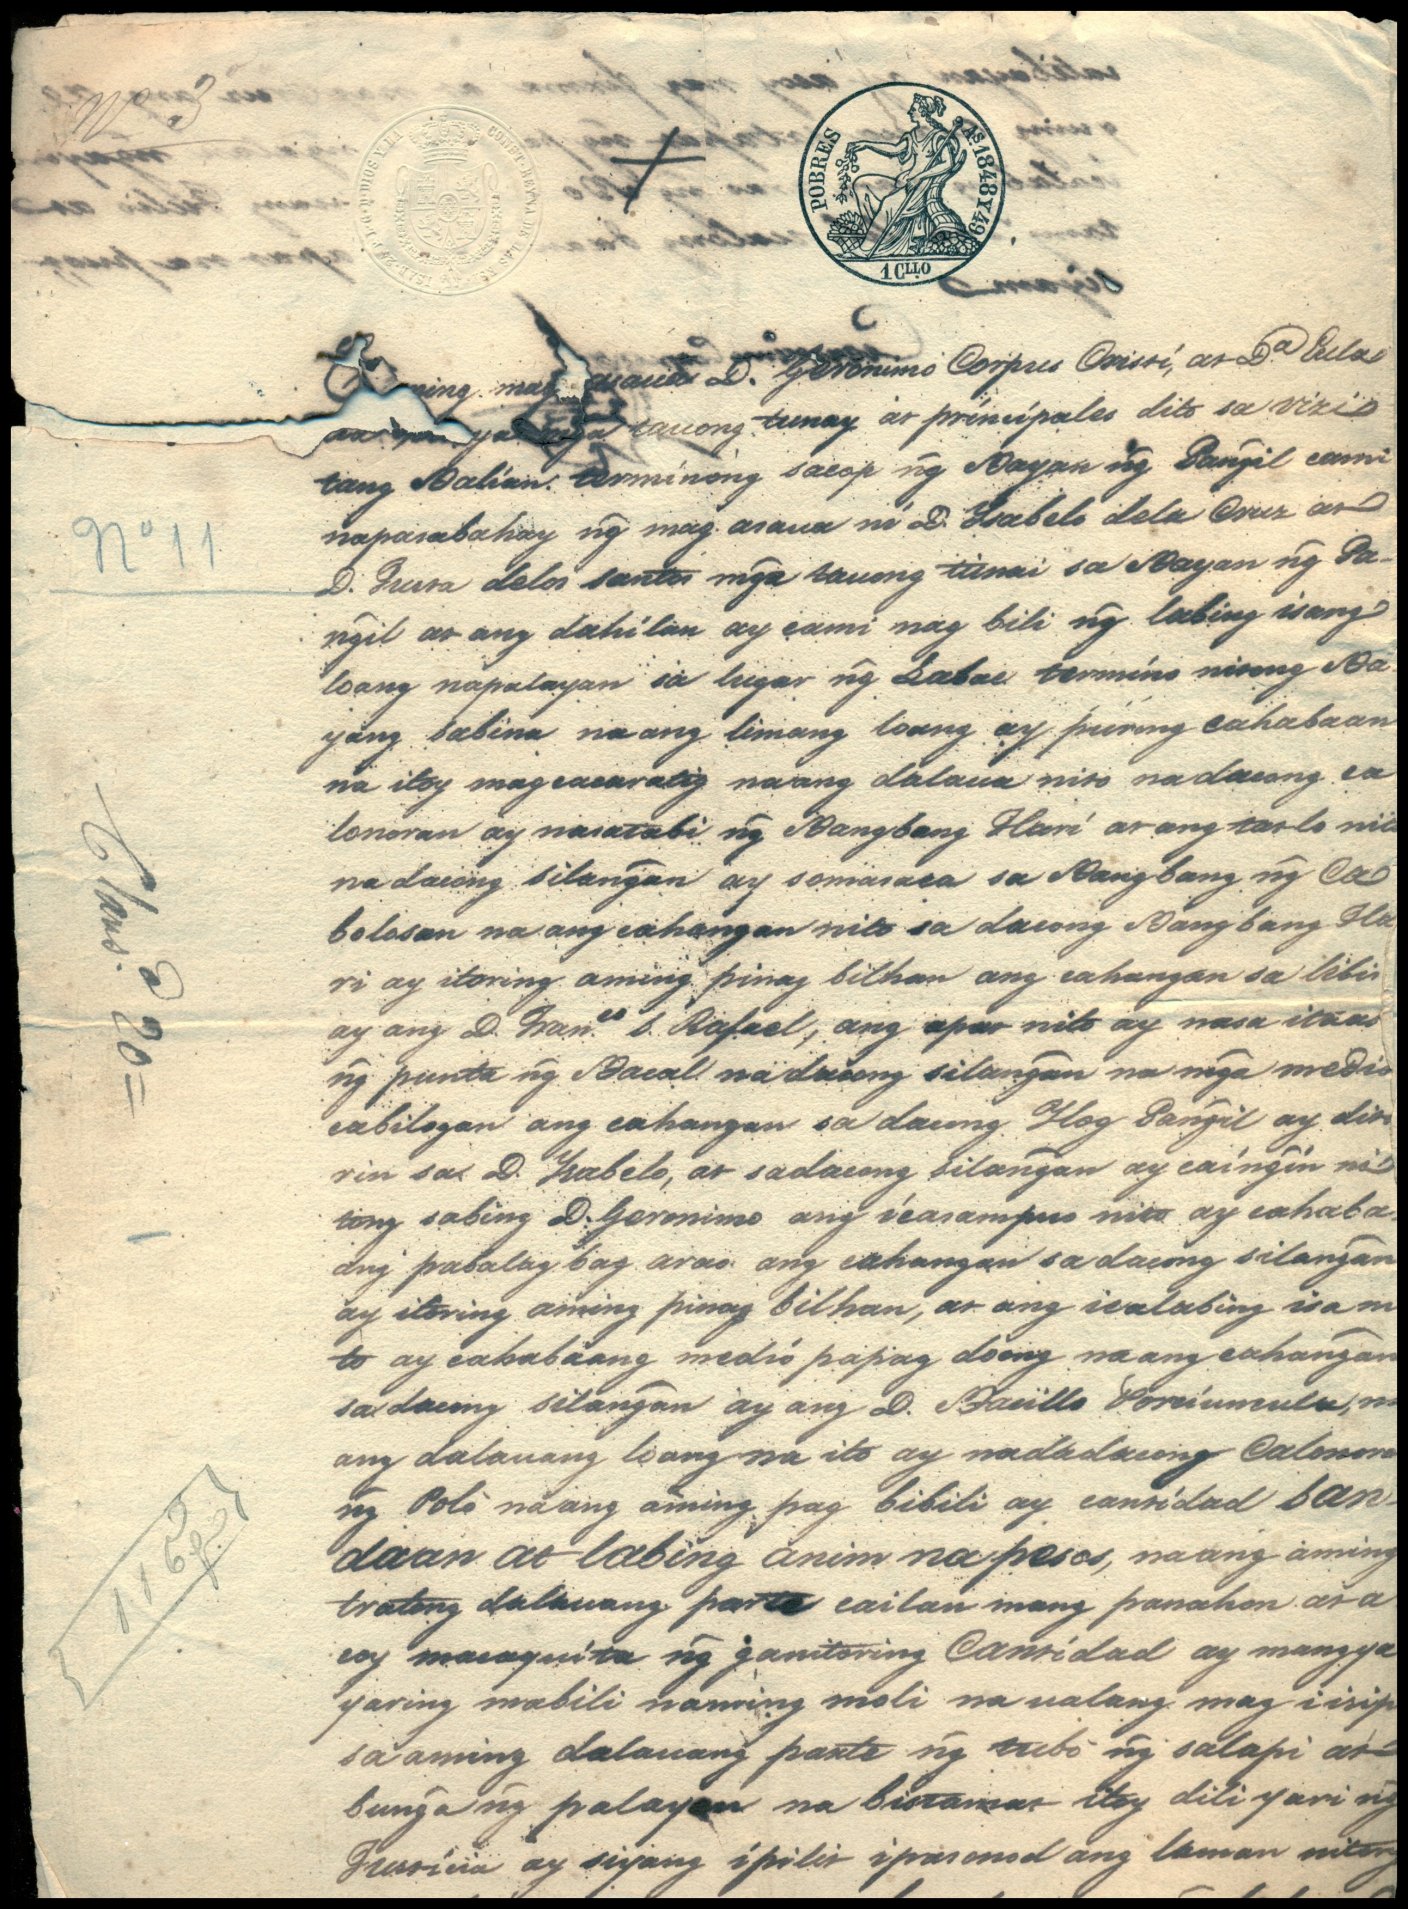 Nº 3
POBRES
Aˢ 1848 Y 49
1 Cllo
Nº 11
Claus.ª 20=
116 p.s
ming mag asaua D. Geronimo Corpus Cristi, at D.ª Eula
ya mga tauong tunay at principales dito sa vizi
tang Balian terminong sacop ng̃ Bayan ng̃ Pang̃il cami
napasabahay ng̃ mag asaua ni D. Ysabelo dela Cruz at
D. Justa delos santos mg̃a tauong tunai sa Bayan ng̃ Pa-
ng̃il at ang dahilan ay cami nag bili ng̃ labing isang
loang napalayan sa lugar ng̃ Labac termino nitong Ba
yang sabina na ang limang loang ay purong cahabaan
na itoy magcacaratig na ang dalaua nito na dacong ca
lonoran ay nasatabi ng̃ Bangbang Hari at ang tatlo nito
na dacong silang̃an ay somasaca sa Bangbang ng̃ Ca
bolosan na ang cahangan nito sa dacong Bangbang Ha
ri ay itoring aming pinag bilhan ang cahangan sa libis
ay ang D. Fran.co S. Rafael, ang apat nito ay nasa itaas
ng̃ punta ng̃ Bacal na dacong silang̃an na mg̃a medio
cabilogan ang cahangan sa dacong Ylog Pang̃il ay dito
rin sa D. Ysabelo, at sadacong silang̃an ay caing̃in ni
tong sabing D. Geronimo ang icasampuo nito ay cahaba-
ang pabalag bag arao ang cahangan sa dacong silang̃an
ay itoring aming pinag bilhan, at ang icalabing isa ni
to ay cahabaang medió papag dóong na ang cahang̃an
sa dacong silang̃an ay ang D. Basillo Porciuncula, na
ang dalauang loang na ito ay nadadacong Calonora
ng̃ Poló na ang aming pag bibili ay cantidad san-
daan at labing anim na pesos, na ang aming
tratong dalauang parte cailan mang panahon at a
coy macaquita ng̃ ganitoring Cantidad ay mangya
yaring mabili namring moli na ualang mag iisip
sa aming dalauang parte ng̃ tubó ng̃ salapi at
bung̃a ng̃ palayan na bistamat itoy dili yari ng̃
Justicia ay siyang ipilit ipasonod ang laman nitong